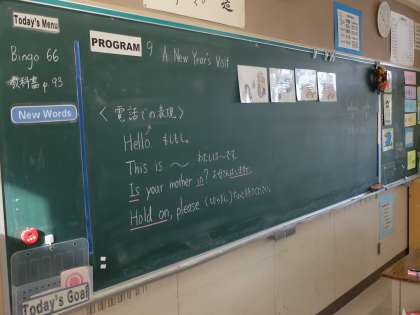 Today's Menu
Bingo 66
教科書 p.93
New Words
PROGRAM 9 A New Year's Visit
〈電話での表現〉
Hello もしもし。
This is ～ わたしは～です。
Is your mother in? お母さんはいますか。
Hold on, please
Today's Goal